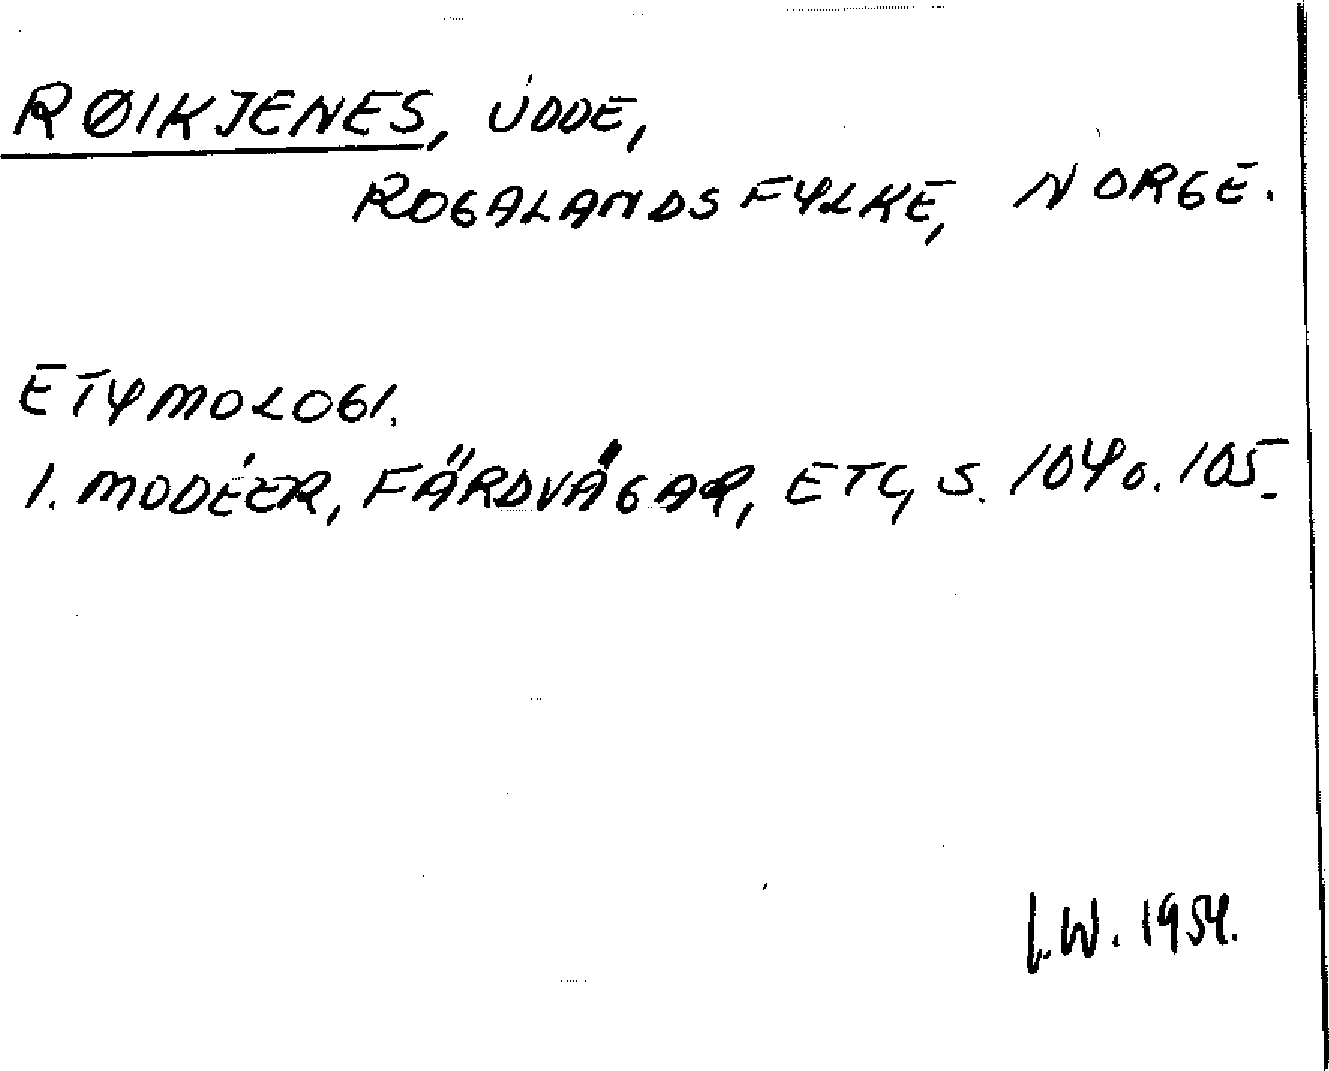 RØIKJENES, UDDE,
ROGALANDS FYLKE, NORGE.
ETYMOLOGI.
1. MODÉER, FÄRDVÄGAR, ETC, S. 104 o. 105.
I.W. 1954.